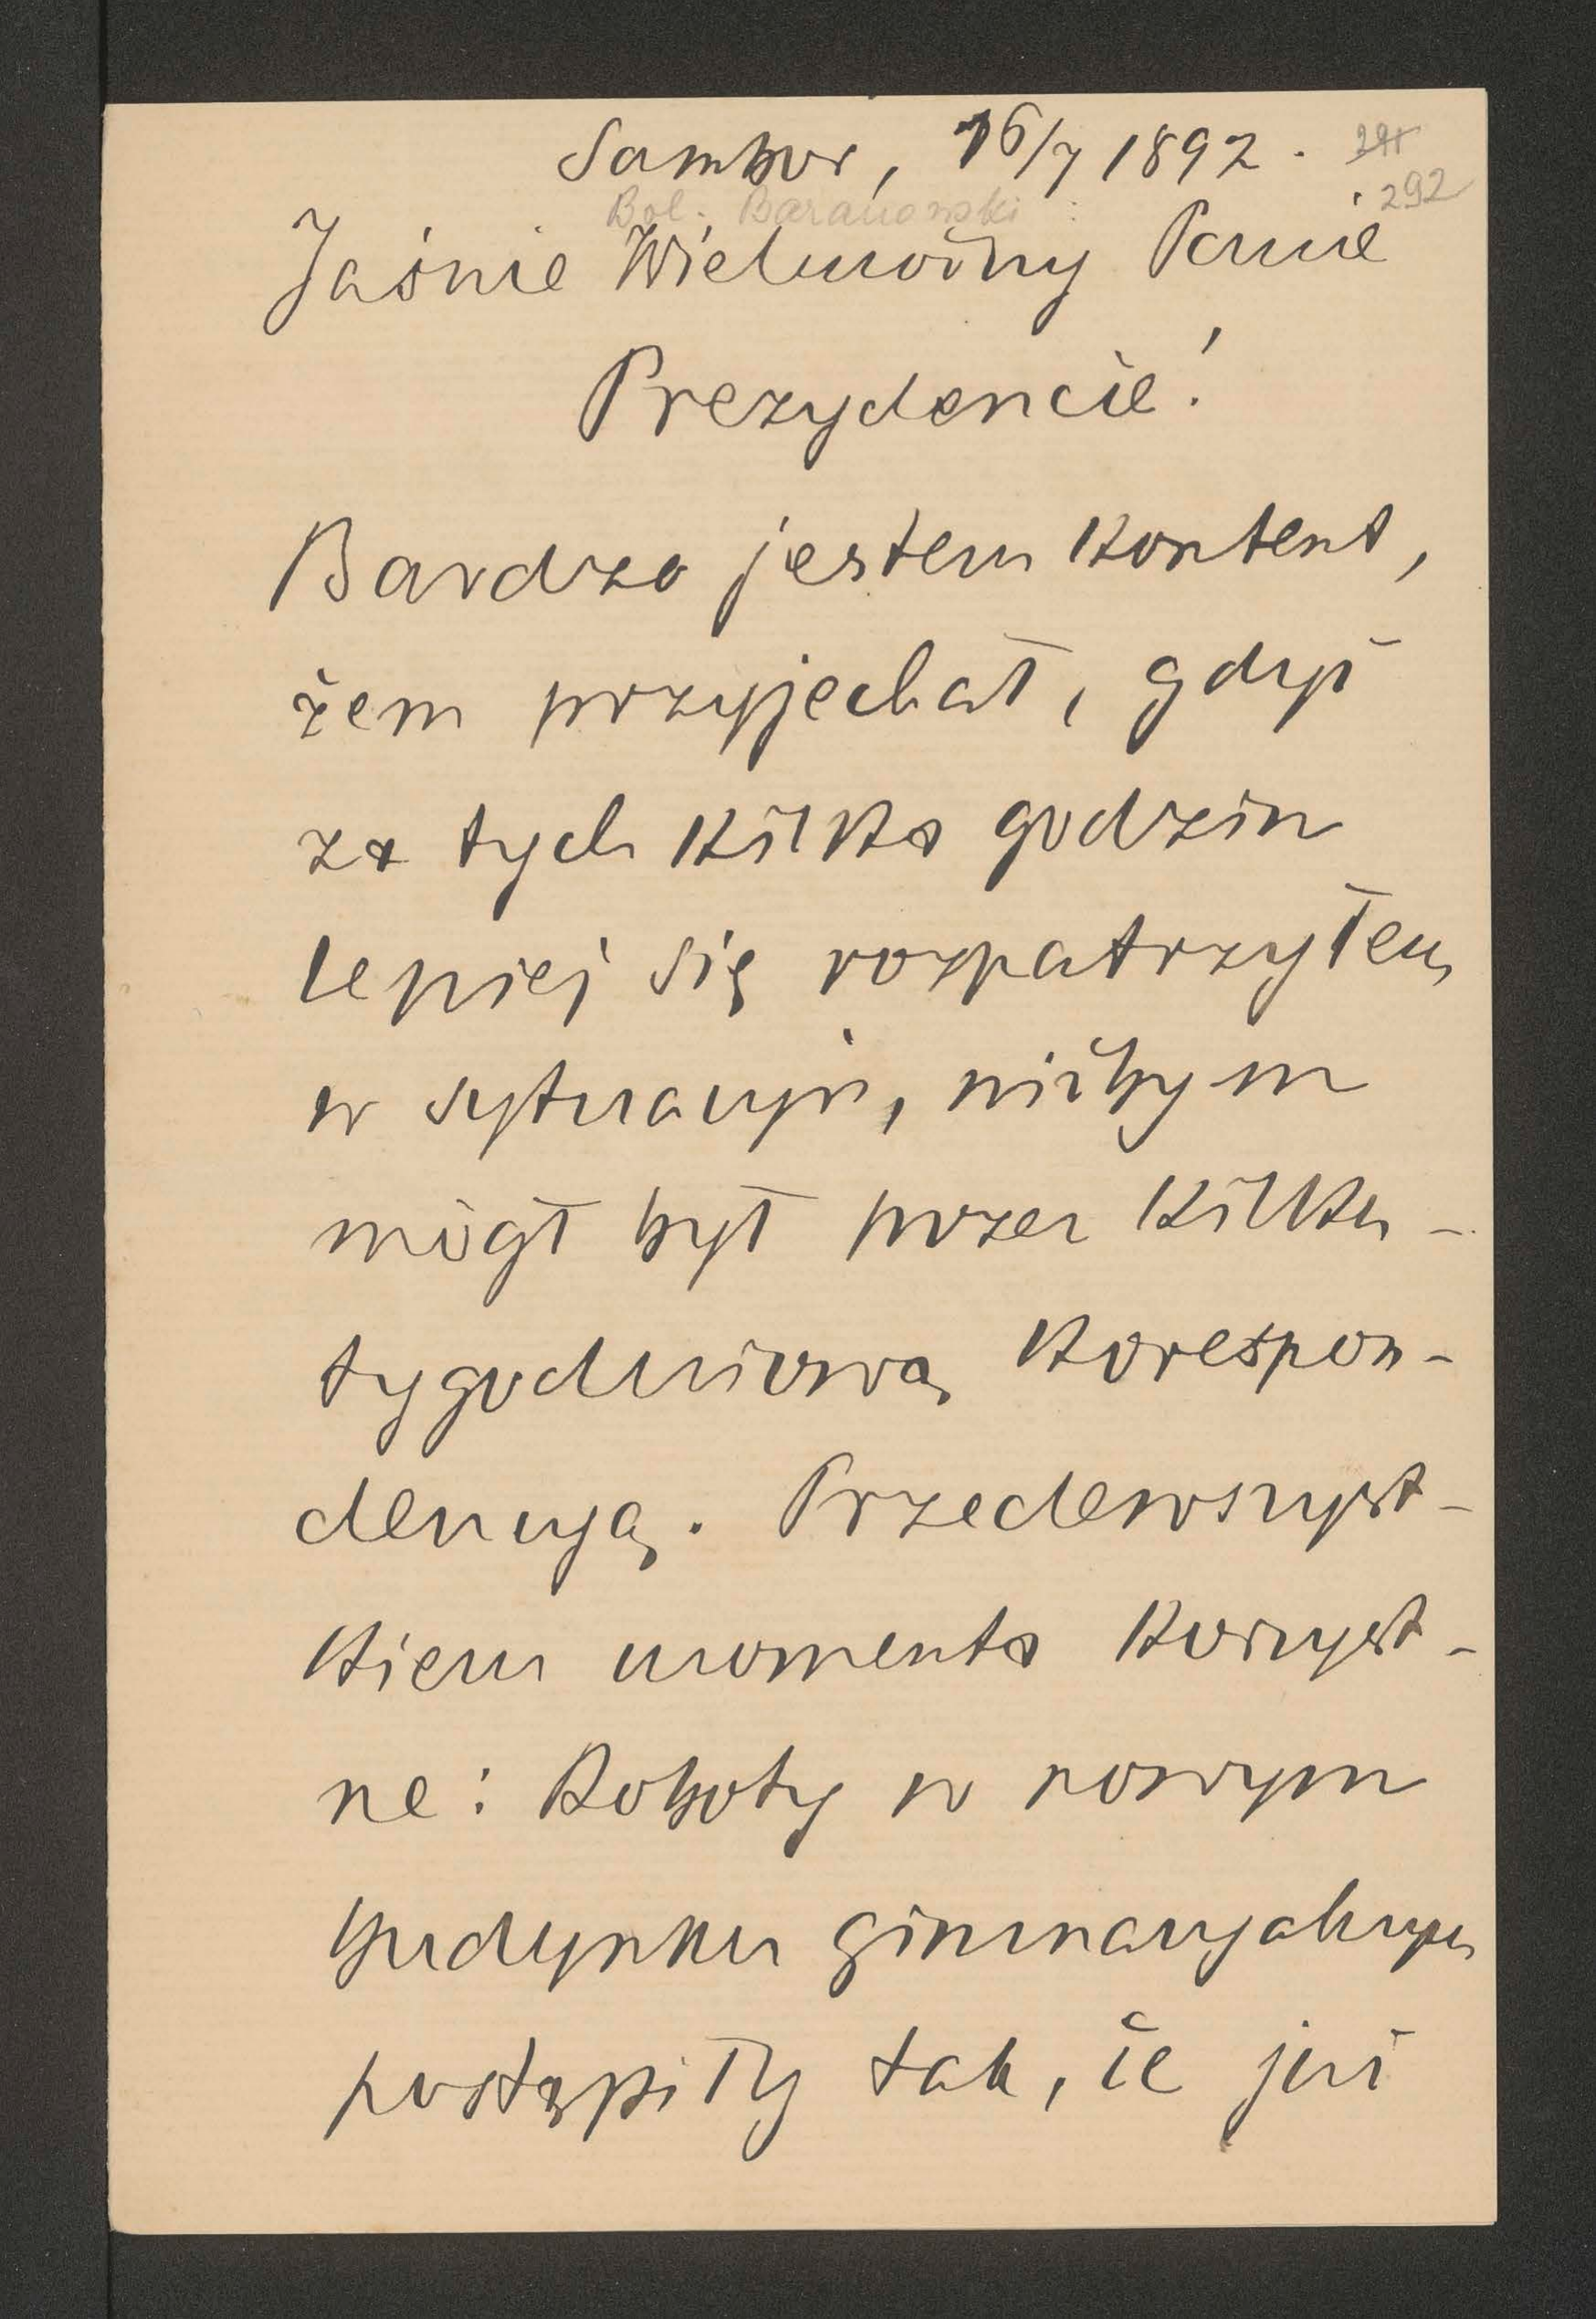 Sambor, 16/7 1892.
292
Bol. Baranowski
Jaśnie Wielmożny Panie
Prezydencie!
Bardzo jestem kontent,
żem przyjechał, gdyż
za tych kilka godzin
lepiej się rozpatrzyłem
w sytuacyi, niżbym
mógł był przez kilku-
tygodniową korespon-
dencyą. Przedewszyst-
kiem momenta korzyst-
ne: Roboty w nowym
budynku gimnazyalnym
postąpiły tak, że już